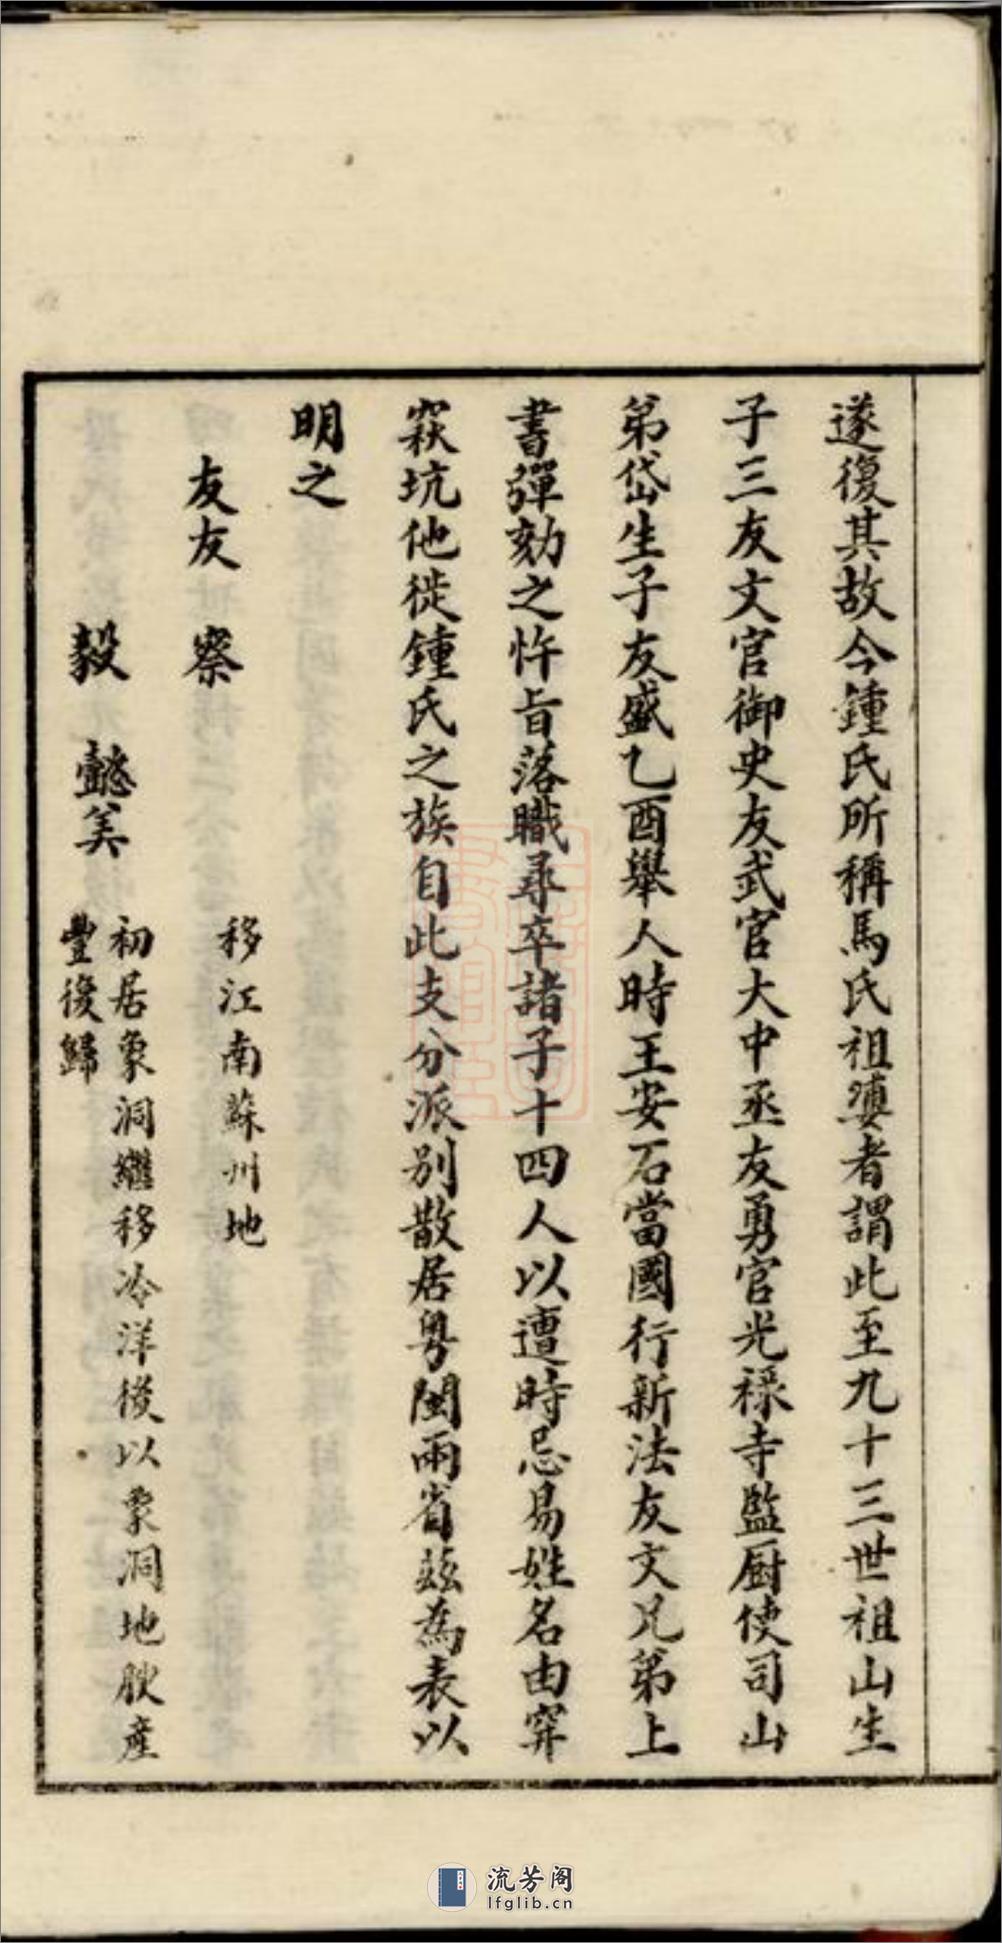 遂復其故今鍾氏所稱馬氏祖婆者謂此至九十三世祖山生
子三友文官御史友武官大中丞友勇官光祿寺監厨使司山
弟岱生子友盛乙酉舉人時王安石當國行新法友文兄弟上
書彈劾之忤旨落職尋卒諸子十四人以遭時忌易姓名由穽
窽坑他徙鍾氏之族自此支分派別散居粤閩兩省茲為表以
明之
友友 察 移江南蘇州地
毅 懿美 初居象洞繼移冷洋後以象洞地腴産
豐後歸
流芳阁
lfglib.cn